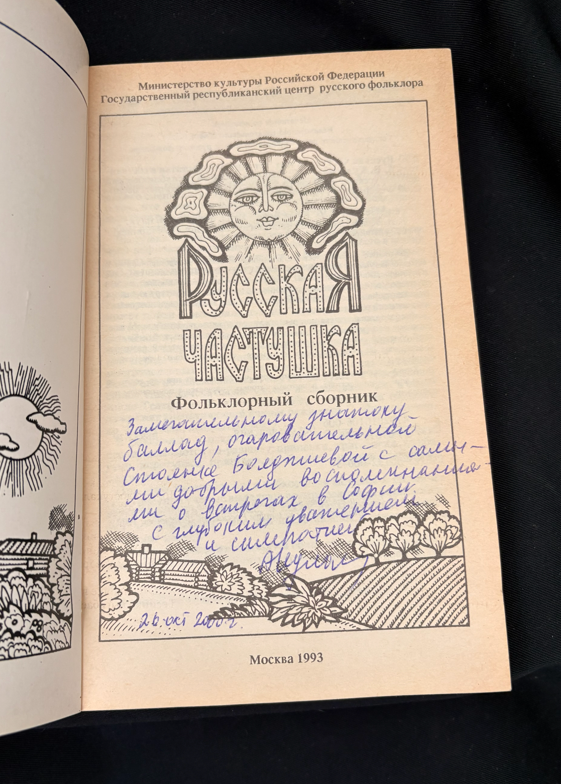 Министерство культуры Российской Федерации
Государственный республиканский центр русского фольклора
РУССКАЯ
ЧАСТУШКА
Фольклорный сборник
Замечательному знатоку
баллад, очаровательной
Стоянке Бояджиевой с самы-
ми добрыми воспоминания-
ми о встречах в Софии
с глубоким уважением
и симпатией
26 окт 200 г.
Москва 1993